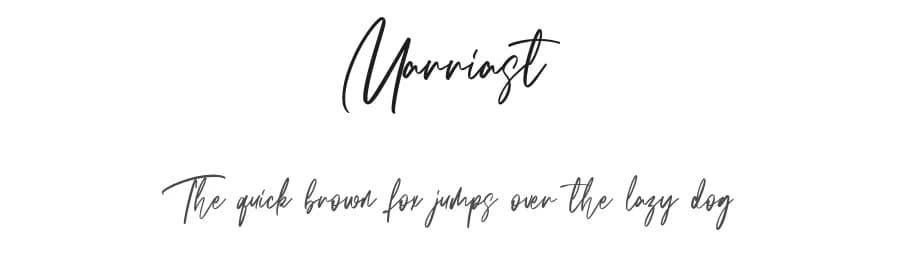 Marriast
The quick brown fox jumps over the lazy dog